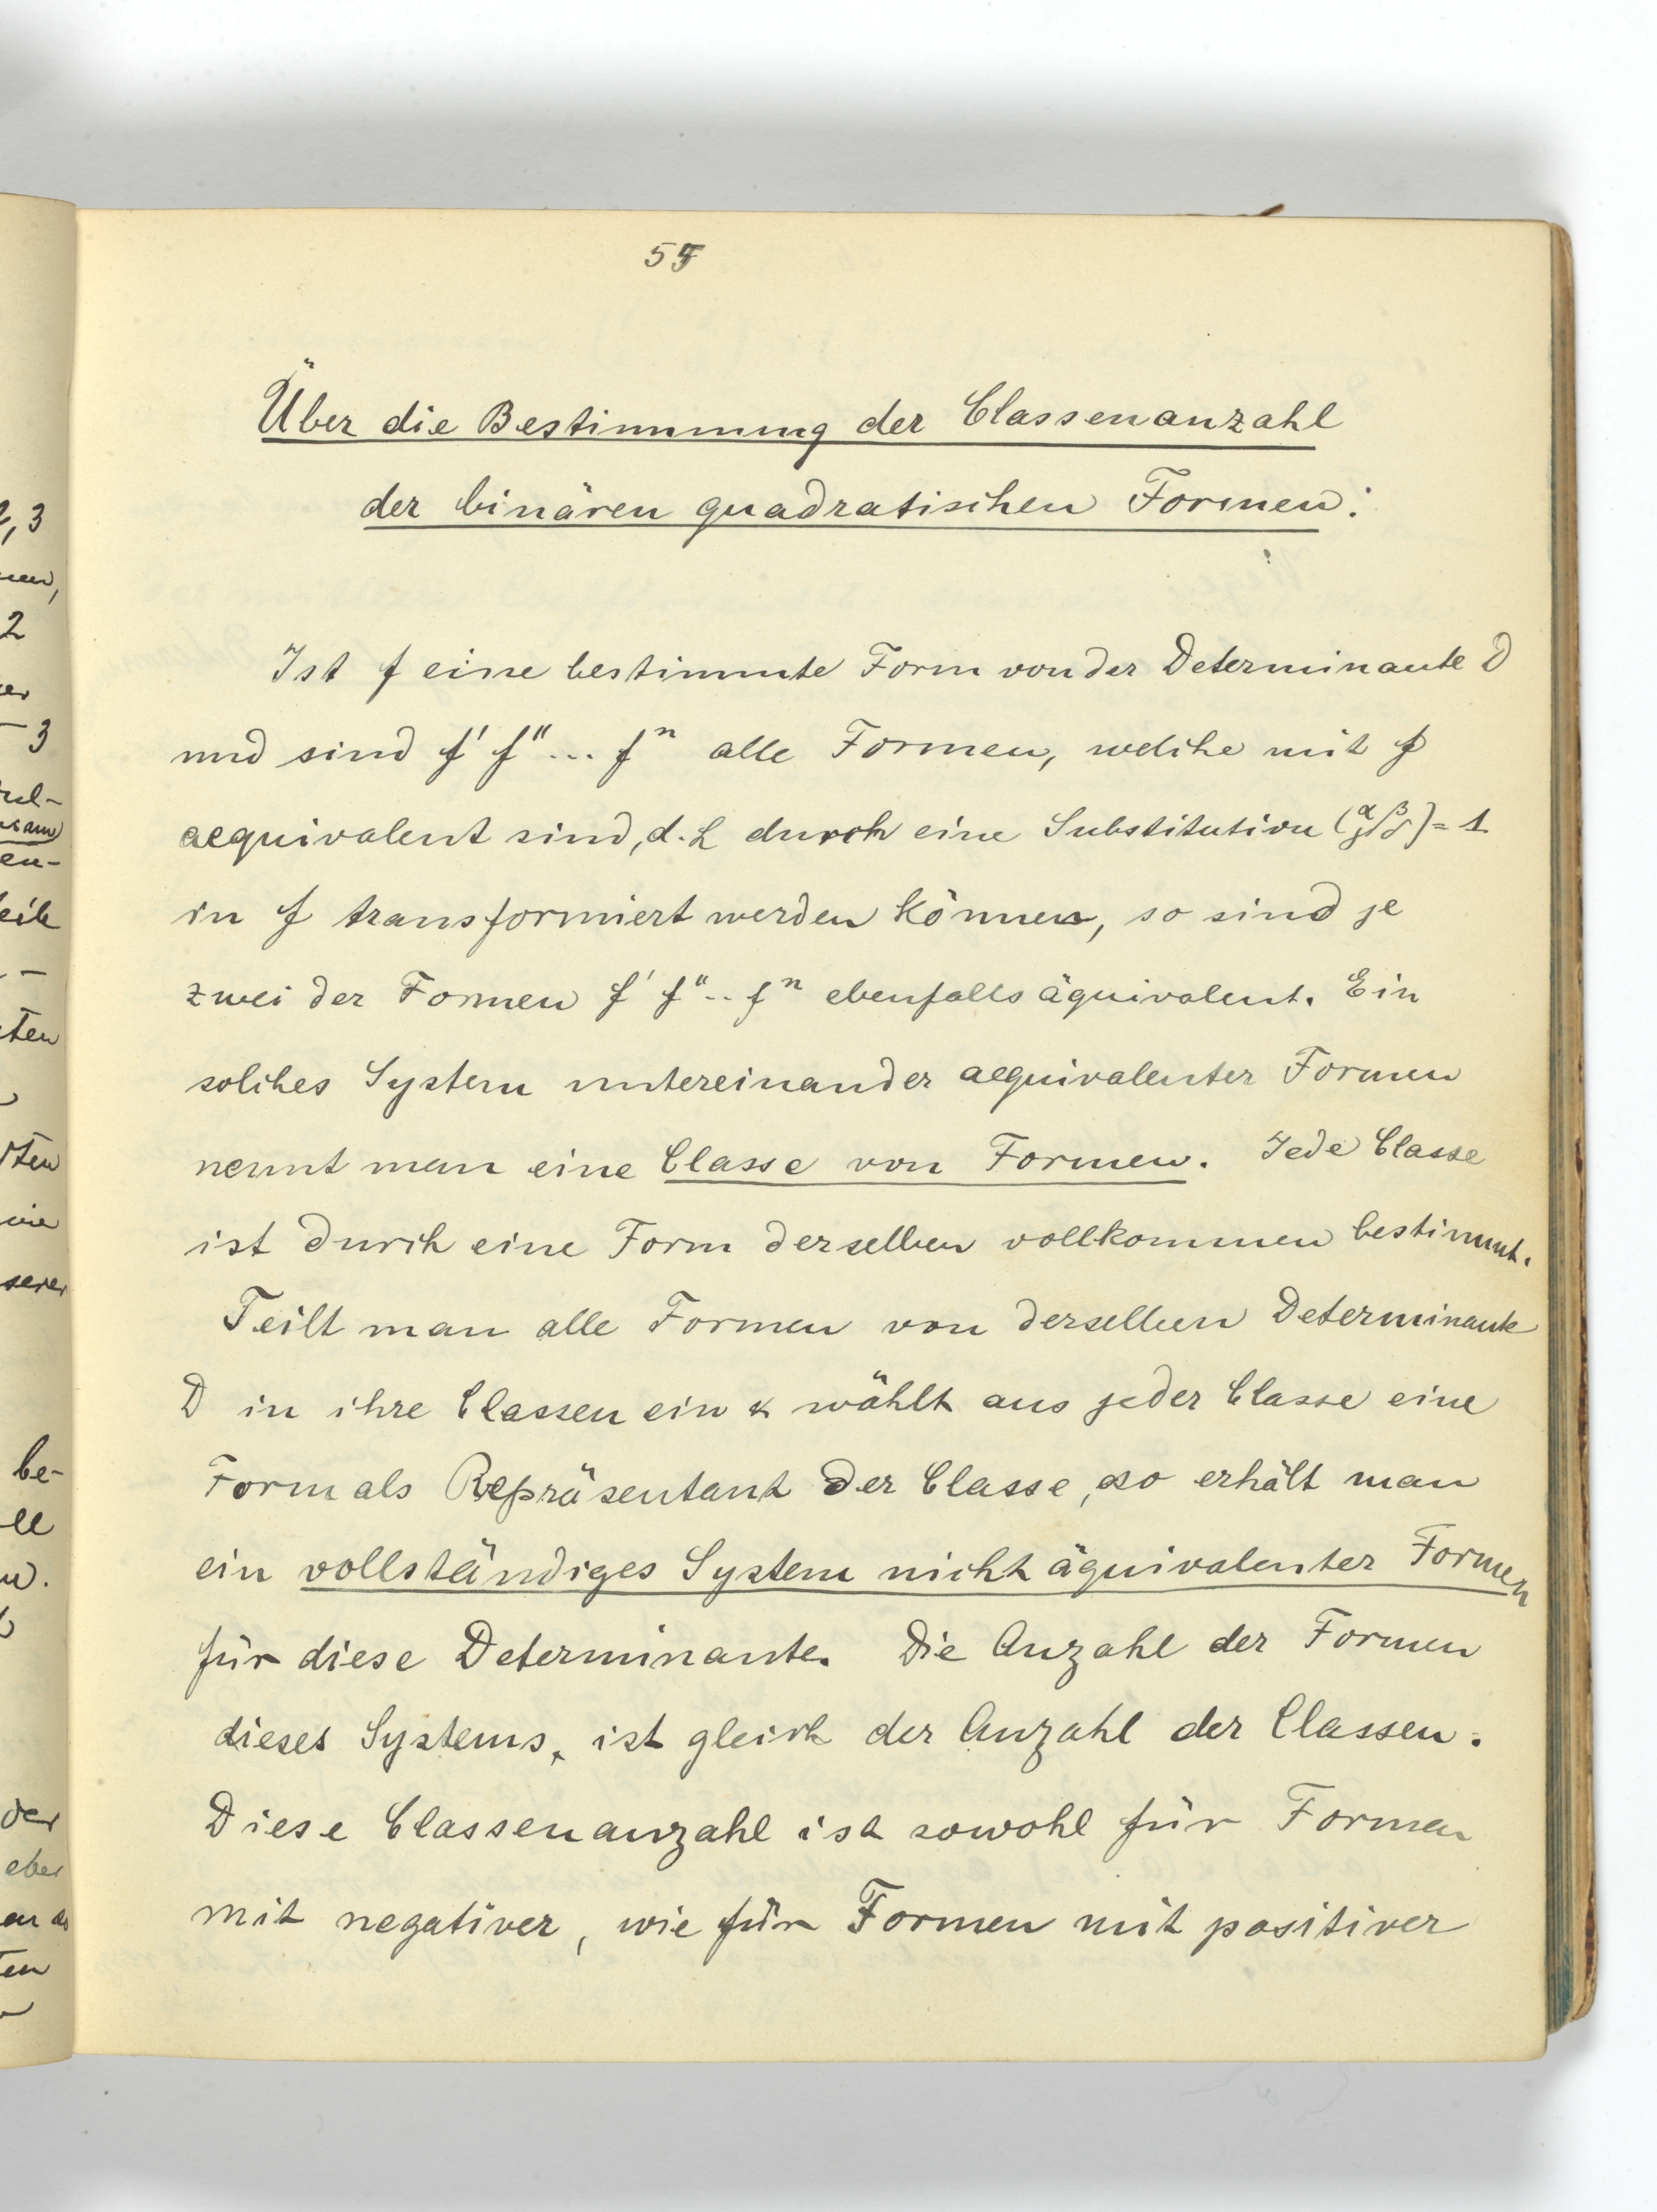 55
Über die Bestimmung der Classenanzahl
der binären quadratischen Formen.
Ist f eine bestimmte Form von der Determinante D
und sind f' f'' ... fⁿ alle Formen, welche mit f
aequivalent sind, d.h durch eine Substitution (α β γ δ) = 1
in f transformiert werden können, so sind je
zwei der Formen f' f'' .. fⁿ ebenfalls äquivalent. Ein
solches System untereinander aequivalenter Formen
nennt man eine Classe von Formen. Jede Classe
ist durch eine Form derselben vollkommen bestimmt.
Teilt man alle Formen von derselben Determinante
D in ihre Classen ein & wählt aus jeder Classe eine
Form als Repräsentant der Classe, so erhält man
ein vollständiges System nicht äquivalenter Formen
für diese Determinante. Die Anzahl der Formen
dieses Systems, ist gleich der Anzahl der Classen.
Diese Classenanzahl ist sowohl für Formen
mit negativer, wie für Formen mit positiver
2, 3
2
- 3
en-
eile
be-
der